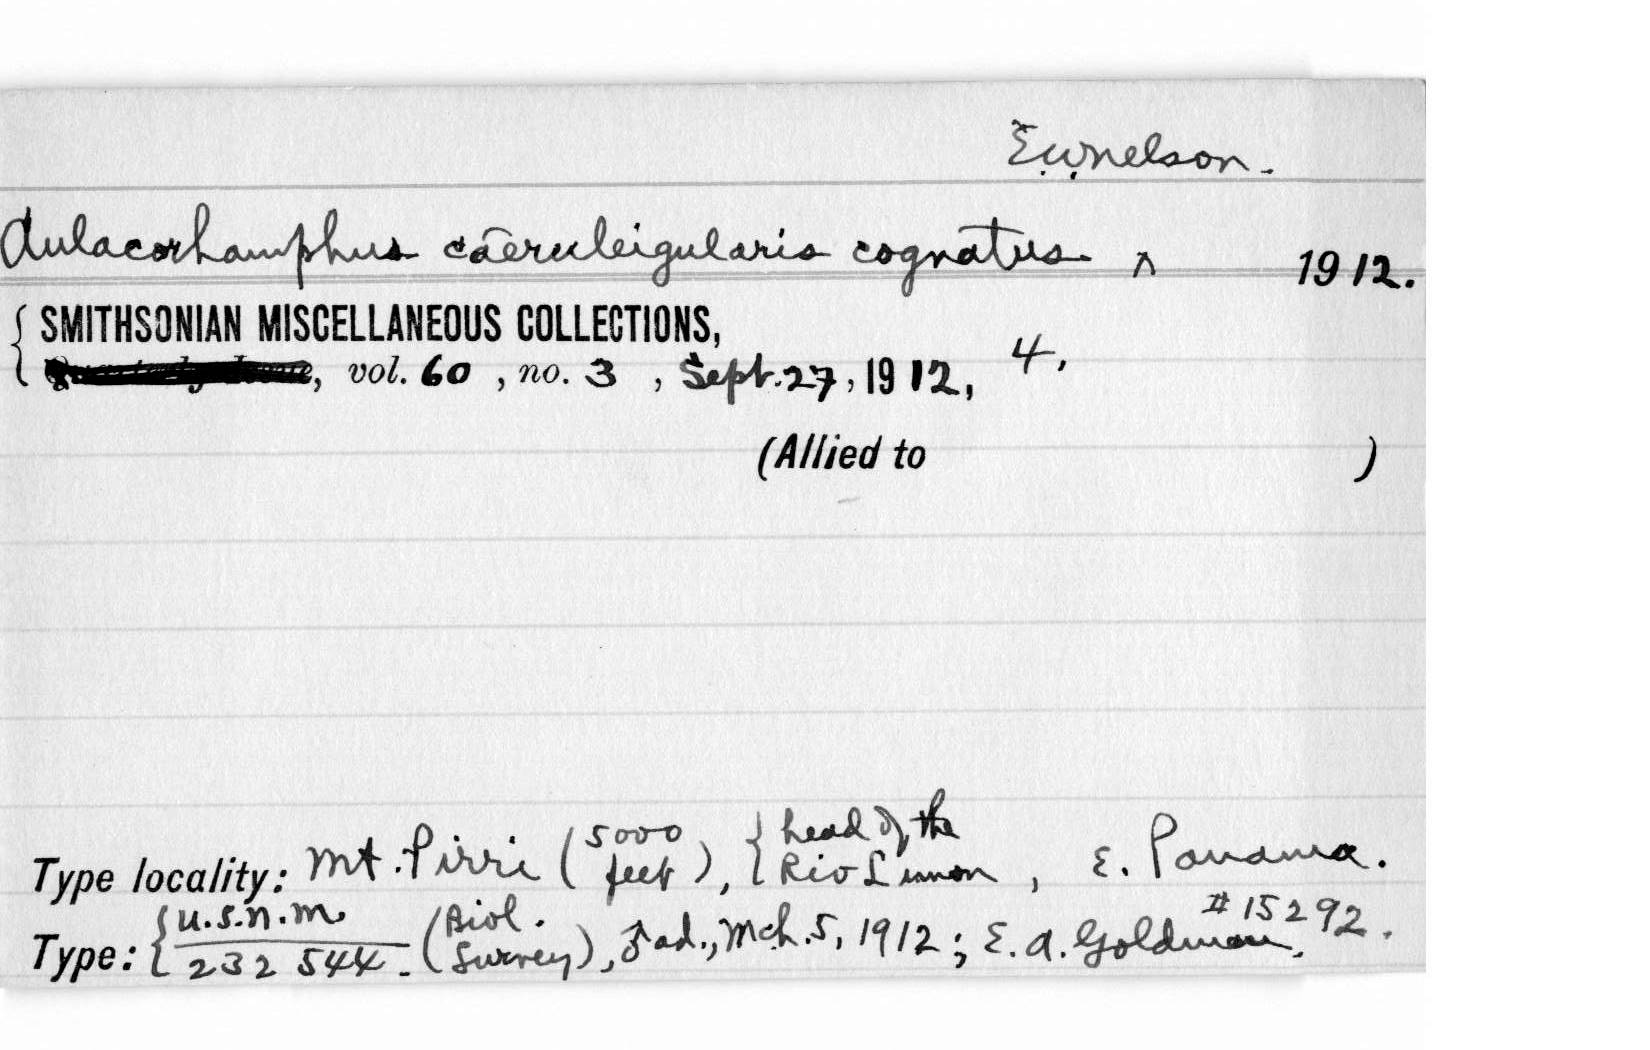 E.W. Nelson.
Aulacorhamphus caeruleigularis cognatus ^ 1912.
{ SMITHSONIAN MISCELLANEOUS COLLECTIONS,
Quarterly Issue, vol. 60, no. 3, Sept. 27, 1912, 4.
(Allied to )
Type locality: Mt. Pirri (5000 feet), { head of the Rio Limon, E. Panama.
Type: { U.S.N.M. 232544. (Biol. Survey), ♂ ad., Mch. 5, 1912; E. A. Goldman. #15292.